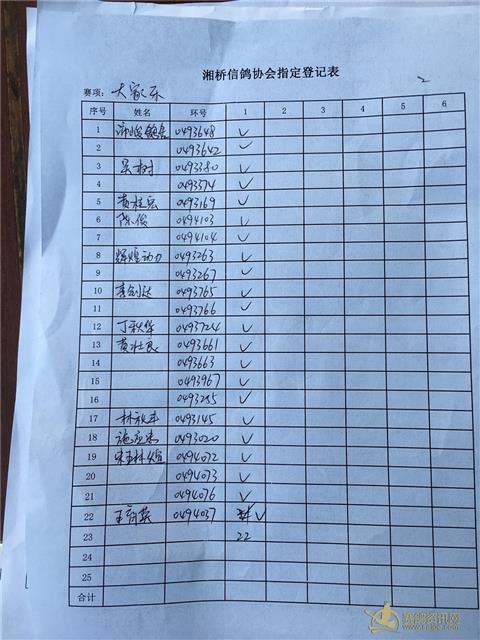 湘桥信鸽协会指定登记表
赛项: 大家乐
2
序号 姓名 环号 1 2 3 4 5 6
1 0493648 ✓
2 0493642 ✓
3 吴树 0493380 ✓
4 0493374 ✓
5 黄桂宏 0493169 ✓
6 陈俊 0494103 ✓
7 0494104 ✓
8 辉煌动力 0493263 ✓
9 0493267 ✓
10 李剑达 0493765 ✓
11 0493766 ✓
12 丁秋华 0493724 ✓
13 黄壮良 0493661 ✓
14 0493663 ✓
15 0493967 ✓
16 0493255 ✓
17 林秋丰 0493145 ✓
18 0493020 ✓
19 0494072 ✓
20 0494073 ✓
21 0494076 ✓
22 0494037 ✓
23 22
24
25
合计
赛鸽资讯网
www.saige.com